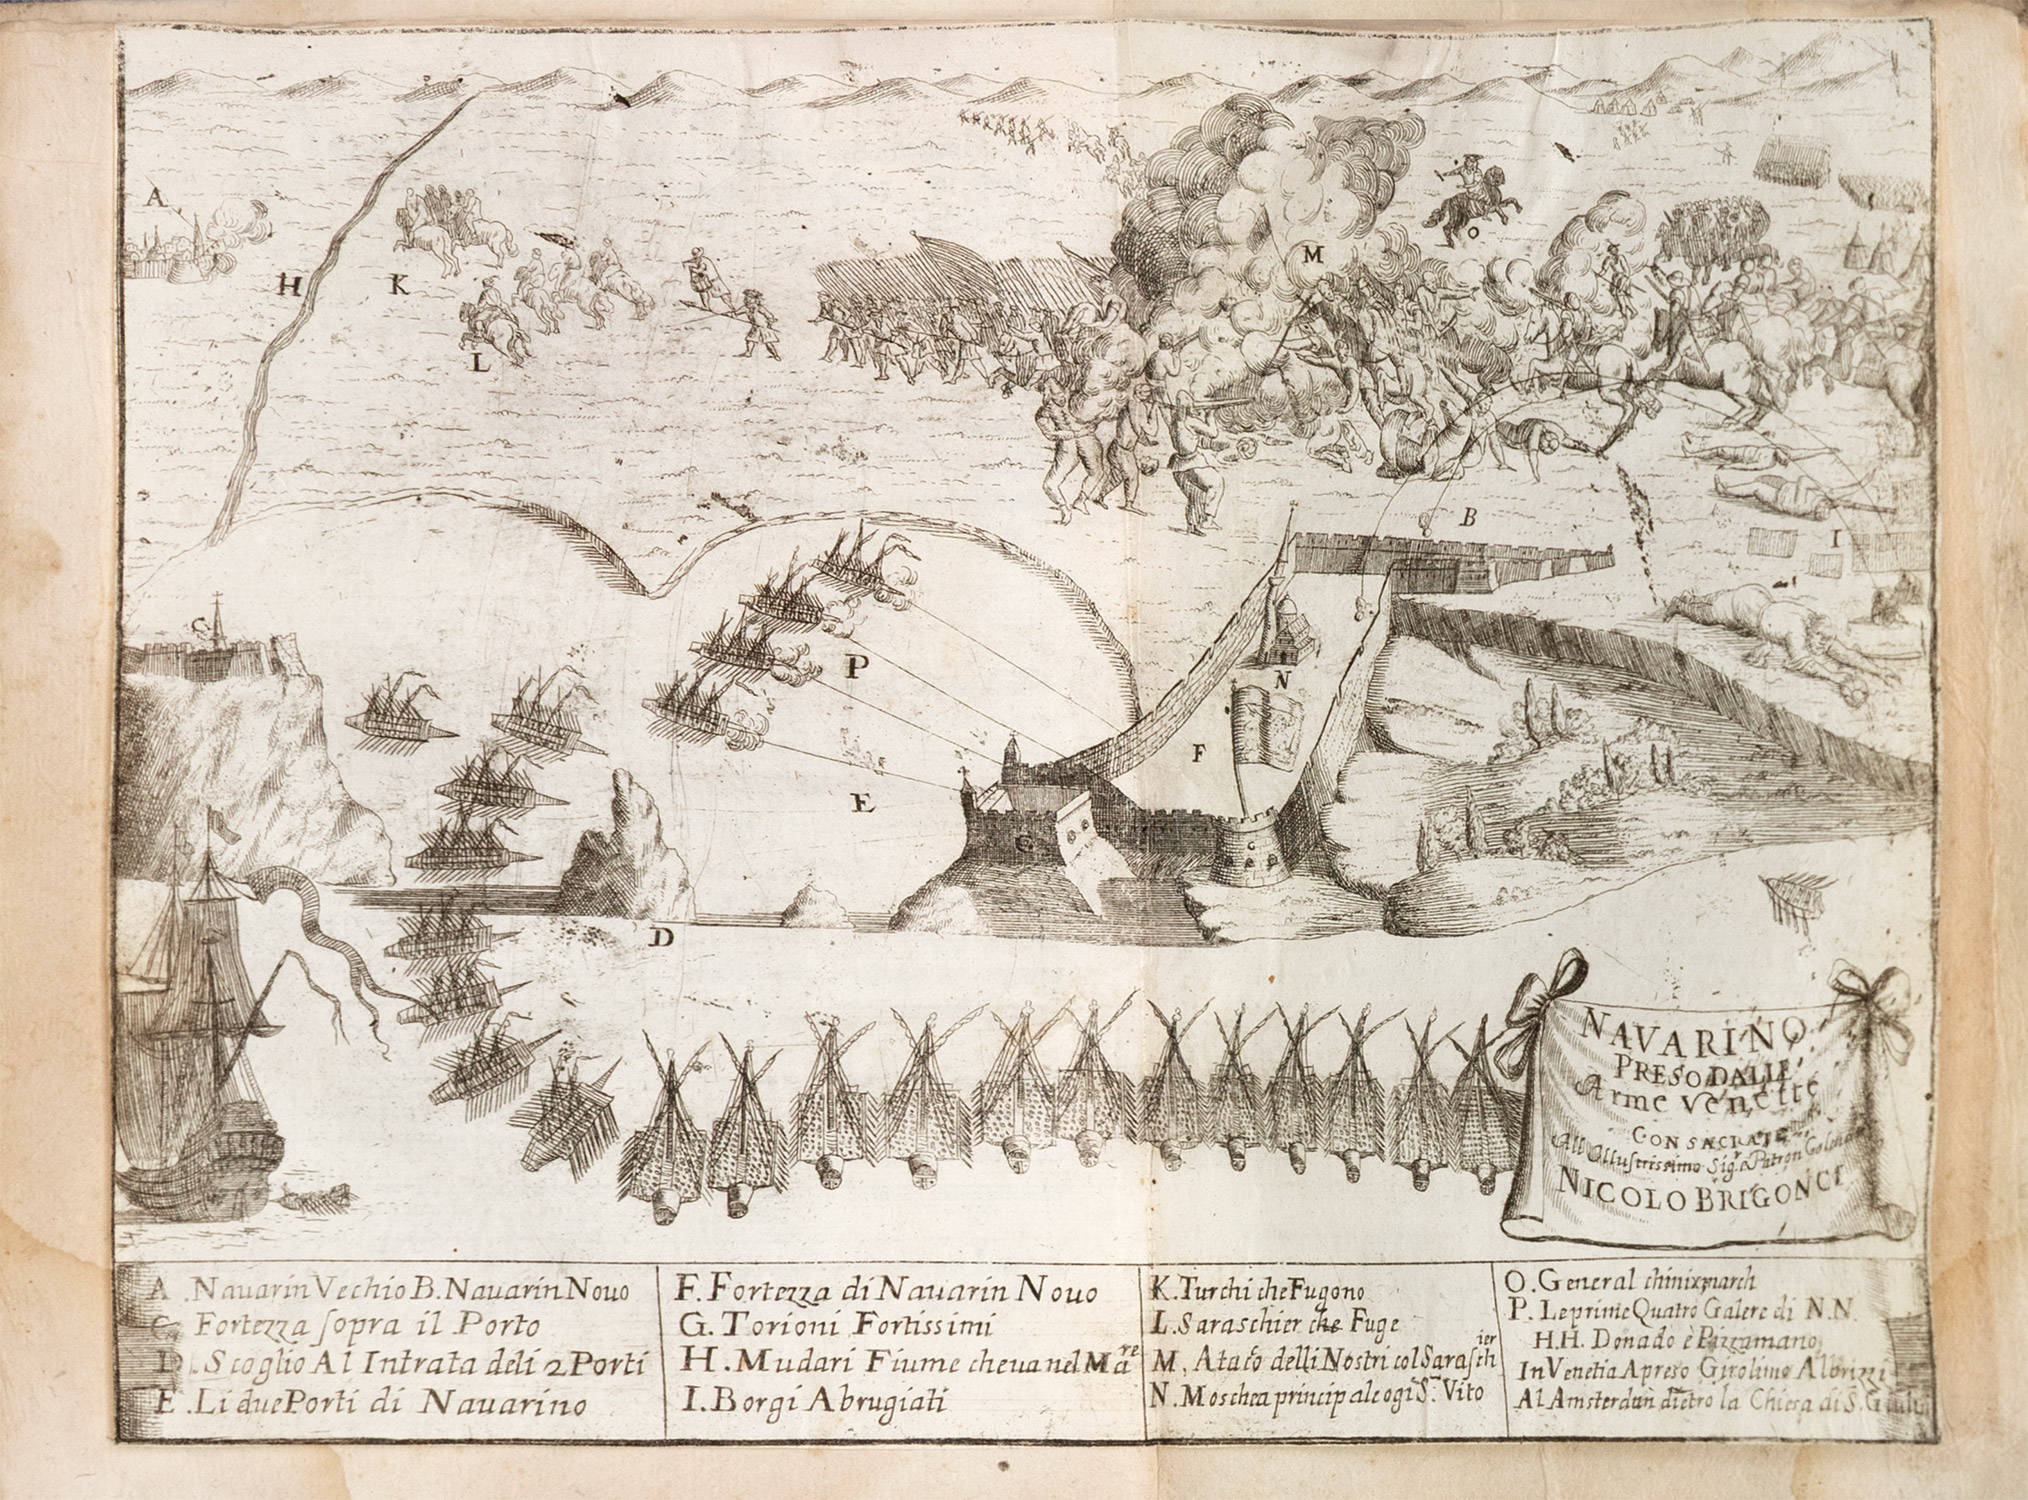 A
H
K
L
M
O
B
I
C
P
E
N
F
G
C
D
NAVARINO
PRESO DALLE
Arme venette
CONSACRATE
All Ollustrissimo Sig.
NICOLO BRIGONCI
A .Nauarin Vechio B. Nauarin Nouo
C. Fortezza sopra il Porto
D .Scoglio Al Intrata deli 2 Porti
E .Li due Porti di Nauarino
F. Fortezza di Nauarin Nouo
G. Torioni Fortissimi
H. Mudari Fiume che ua nel Mare
I. Borgi Abrugiati
K. Turchi che Fugono
L. Saraschier che Fuge
M. Ataco delli Nostri col Saraschier
N. Moschea principale ogi S. Vito
O. General
P. Le prime Quatro Galere di N.N.
H.H. Donado e Pizzamano
In Venetia Apreso Girolimo Albrizzi
Al Amsterdan dietro la Chiesa di S.